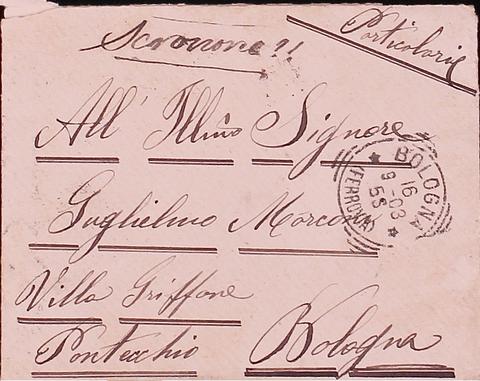 Particolare
All' Illmo Signore
Guglielmo Marconi
Villa Griffone
Pontecchio Bologna
BOLOGNA
16
9-03
5S
(FERROVIA)